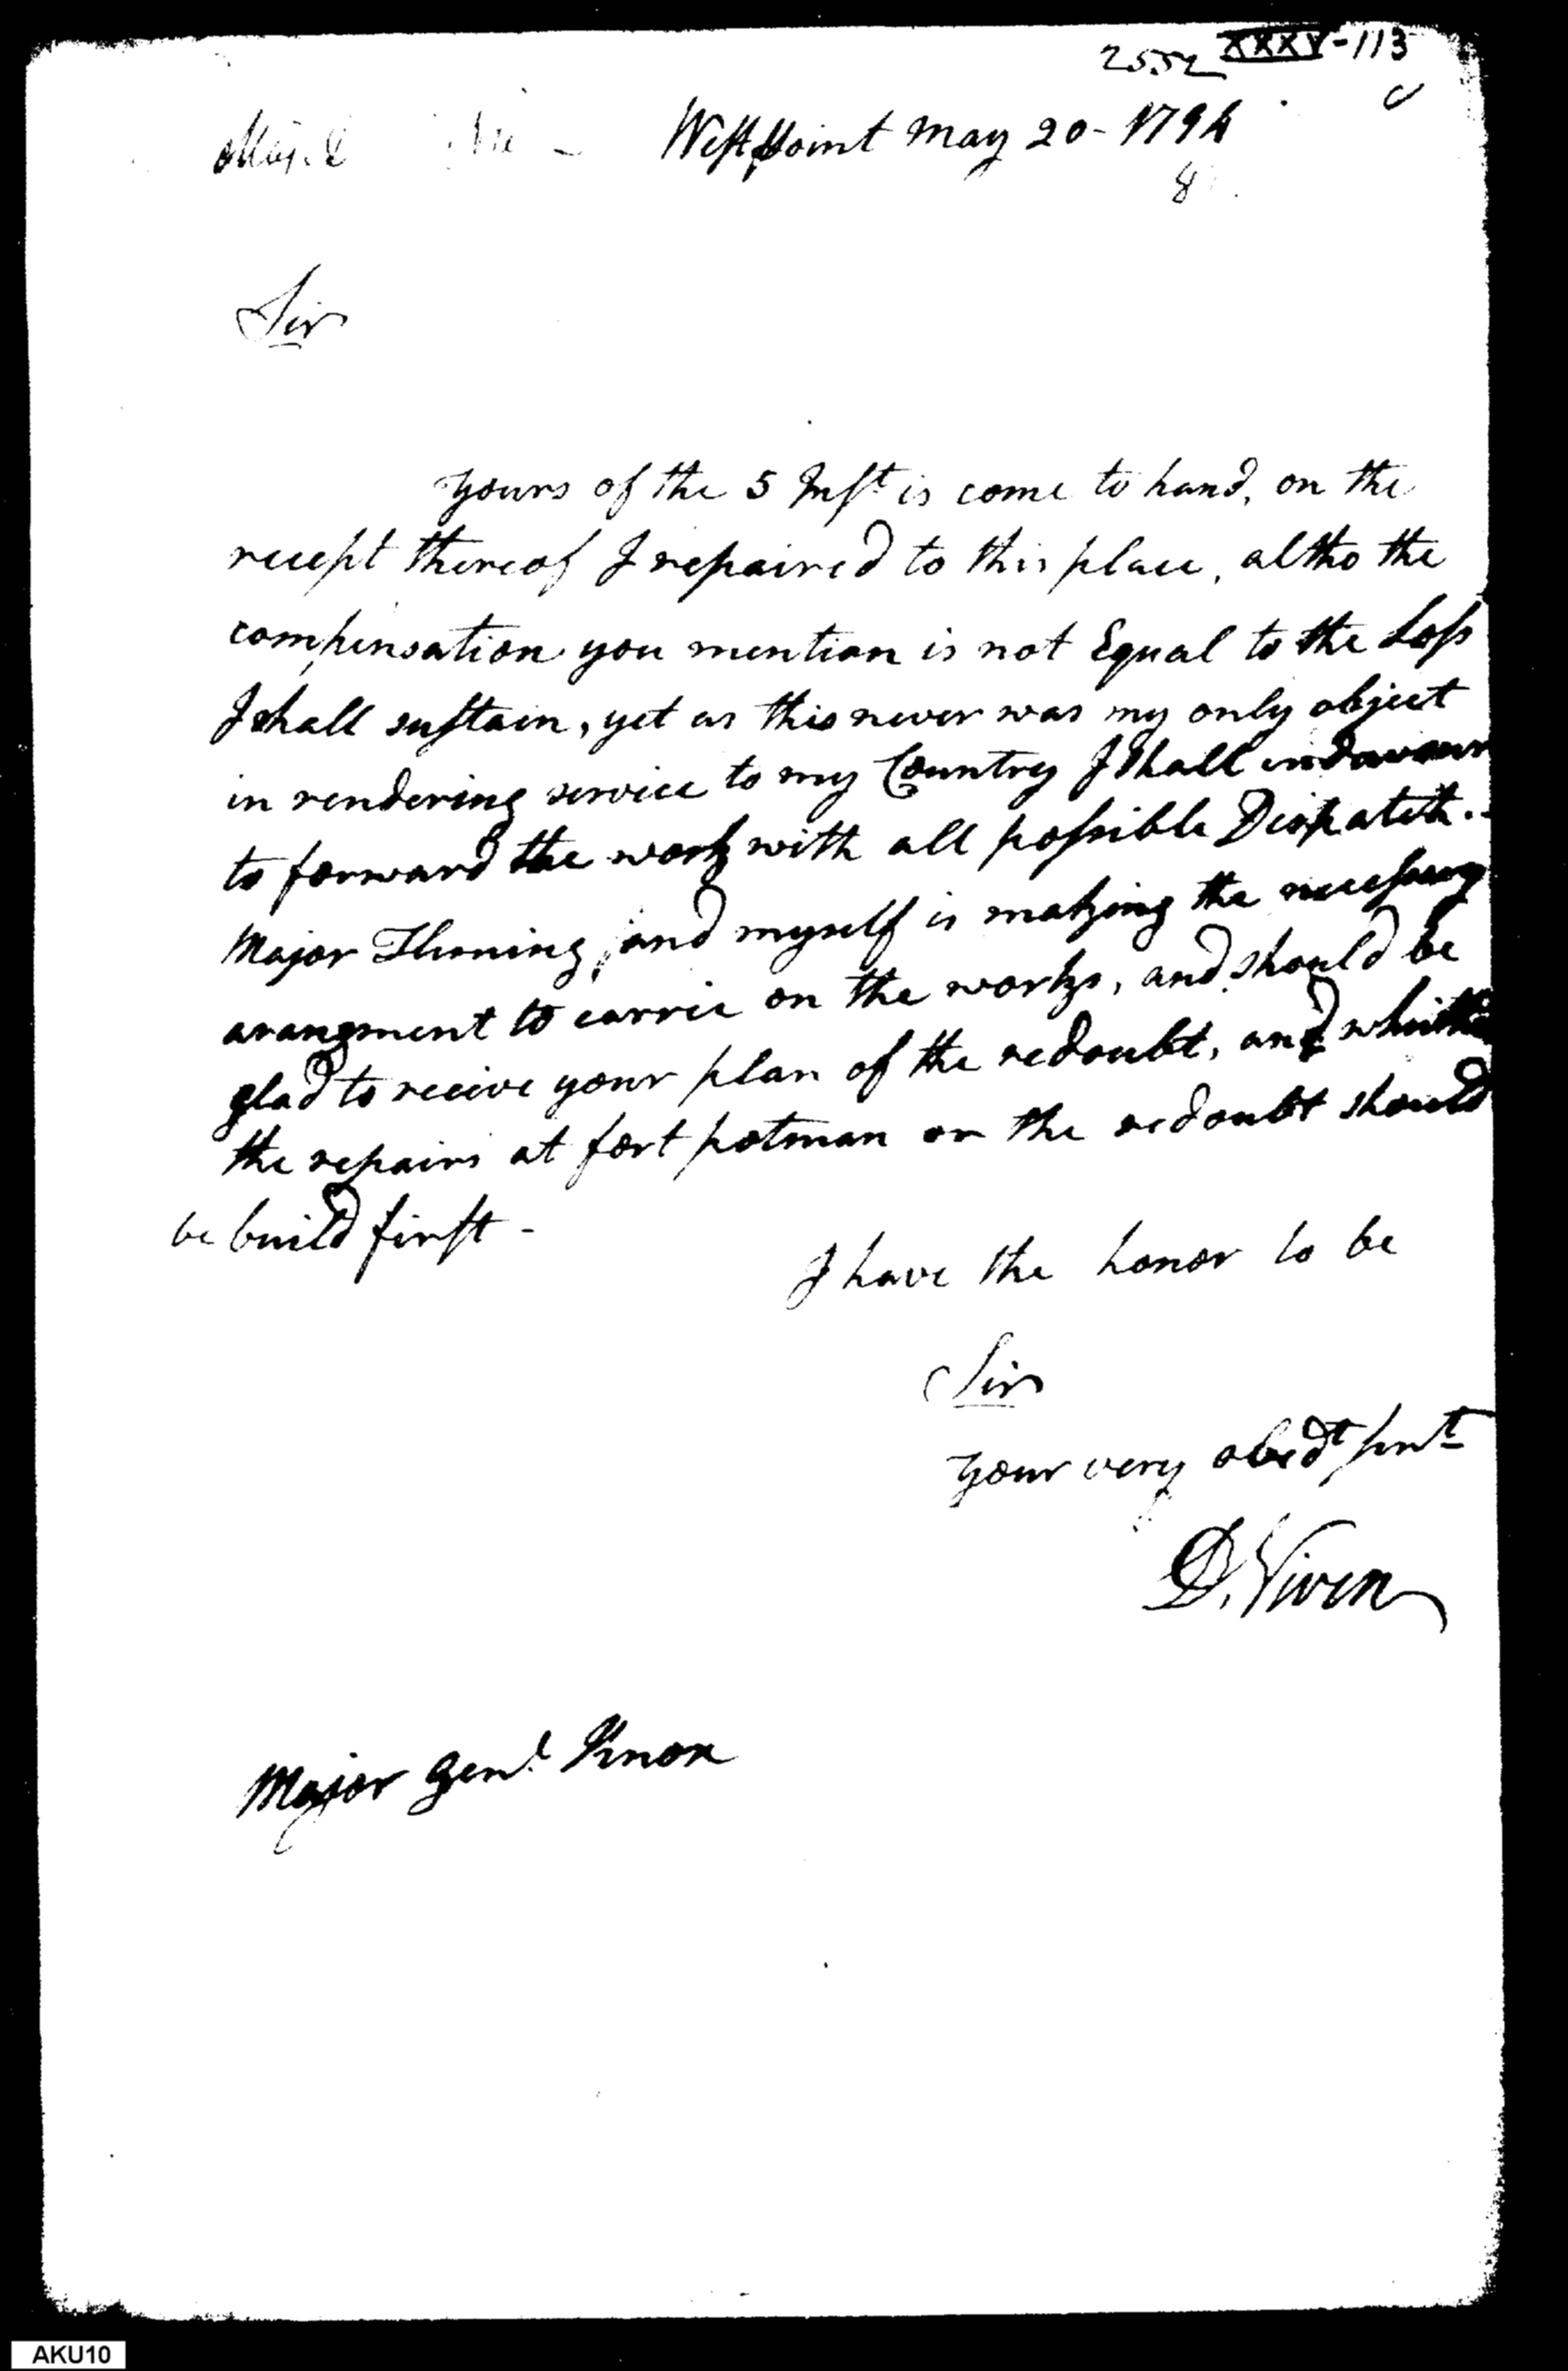 2552 XXXV-113
West point May 20 - 1794
8
Sir
yours of the 5 Inst is come to hand, on the
recept thereof I repaired to this place, altho the
compensation you mention is not Equal to the Loss
I shall sustain, yet as this never was my only object
in rendering service to my Country I shall indavour
to forward the work with all possible Dispatch.
Major Fleming, and myself is making the necessary
arangment to carrie on the works, and should be
glad to receive your plan of the redoubt, and whither
the repairs at fort potman or the redoubt should
be build first -
I have the honor to be
Sir
your very obedt sert
D. Niven
Major Genl Knox
AKU10